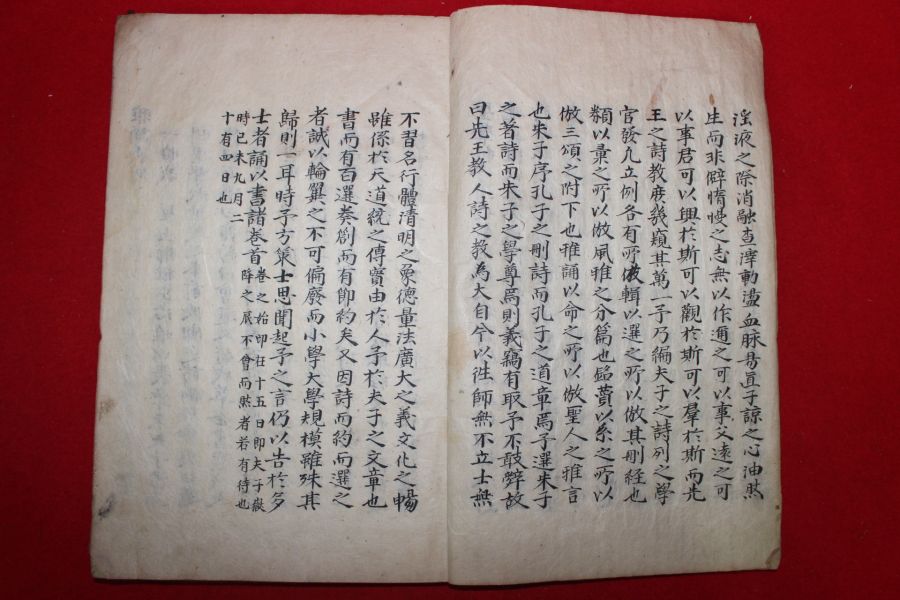 淫液之際消融查滓動盪血脉易直子諒之心油然
生而非僻惰慢之志無以作邇之可以事父遠之可
以事君可以興於斯可以觀於斯可以羣於斯而先
王之詩教庶幾窺其萬一予乃編夫子之詩列之學
官發凡立例各有所倣輯以選之所以倣其刪経也
類以彙之所以倣風雅之分篇也銘賛以系之所以
倣三頌之附下也雅誦以命之所以倣聖人之雅言
也朱子序孔子之刪詩而孔子之道章焉予選朱子
之著詩而朱子之學尊焉則義竊有取予不敢辭故
曰先王教人詩之教為大自今以徃師無不立士無
不習名行體清明之象德量法廣大之義文化之暢
雖係於天道統之傳實由於人予於夫子之文章也
書而有百選奏劄而有節約矣又因詩而約而選之
者誠以輪翼之不可偏廢而小學大學規模雖殊其
歸則一耳時予方策士思聞起予之言仍以告於多
士者誦以書諸巻首巻之始印在十五日即夫子嶽
降之辰不會而然者若有待也
時己未九月二
十有四日也